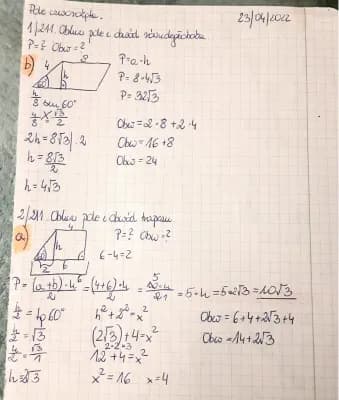 Pole czworokąta.
23/04/2022
1/211. Oblicz pole i obwód równoległoboku
P=? Obw=?
b)
8
4
h
60°
P=a·h
P=8·4√3
P=32√3
h/8 sin60°
h/8 = √3/2
2h=8√3 |:2
h=8√3/2
h=4√3
Obw=2·8+2·4
Obw=16+8
Obw=24
2/211. Oblicz pole i obwód trapezu
a)
4
h
2
6
6-4=2
P=? Obw=?
P=(a+b)·h/2=(4+6)·h/2=10·h/2=5·h=5·2√3=10√3
h/2=tg60°
h/2=√3
h/2=√3/1
h=2√3
h²+2²=x²
(2√3)+4=x²
2·2·3
12+4=x²
x²=16 x=4
Obw=6+4+2√3+4
Obw=14+2√3